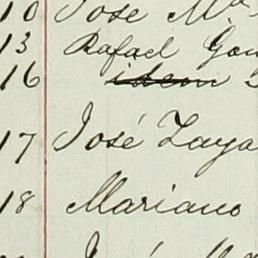 10 José Ma
13 Rafael Gon
16 idem
17 José Zaya
18 Mariano